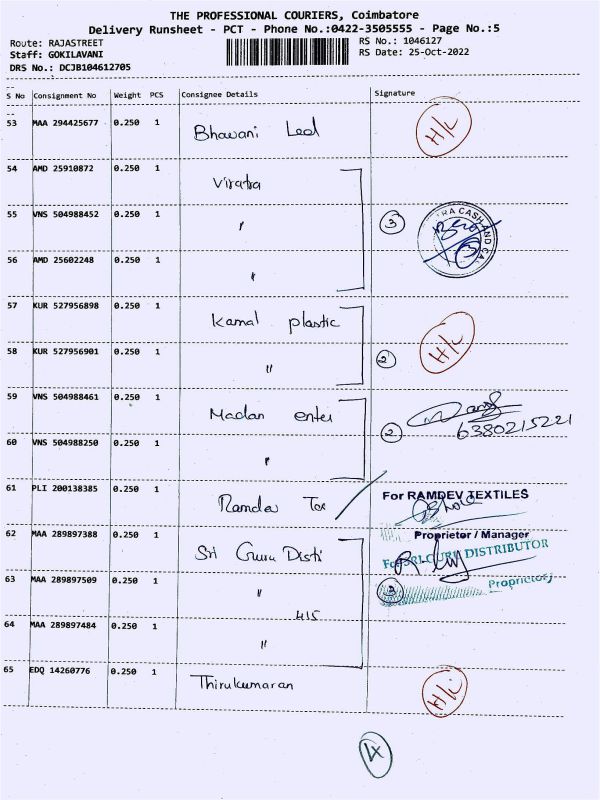 THE PROFESSIONAL COURIERS, Coimbatore
Delivery Runsheet - PCT - Phone No.:0422-3505555 - Page No.:5
Route: RAJASTREET RS No.: 1046127
Staff: GOKILAVANI RS Date: 25-Oct-2022
DRS No.: DCJB104612705
S No Consignment No Weight PCS Consignee Details Signature
53 MAA 294425677 0.250 1 Bhavani Led H/L
54 AMD 25910872 0.250 1 Viratra
55 VNS 504988452 0.250 1 〃 3 TRA CASH AND CA
56 AMD 25602248 0.250 1 〃
57 KUR 527956898 0.250 1 Kamal plastic H/L
58 KUR 527956901 0.250 1 〃 2
59 VNS 504988461 0.250 1 Madan enter
6380215221
60 VNS 504988250 0.250 1 〃 2
61 PLI 200138385 0.250 1 Ramdev Tex For RAMDEV TEXTILES
Proprietor / Manager
62 MAA 289897388 0.250 1 Sri Guru Disti For SRI GURU DISTRIBUTOR
63 MAA 289897509 0.250 1 〃 3 Proprietory
415
64 MAA 289897484 0.250 1 〃
65 EDQ 14260776 0.250 1 Thirukumaran H/L